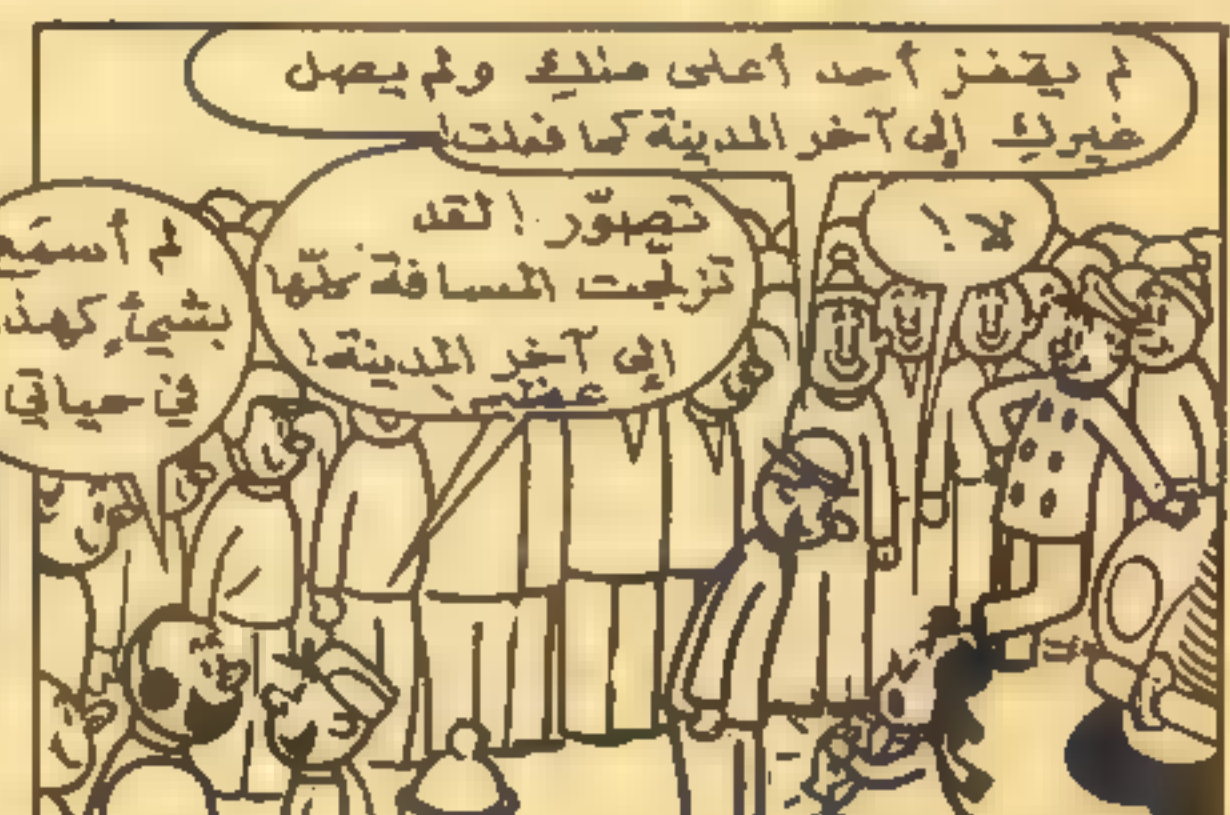 لم يقفز أحد أعلى منكِ ولم يصل
غيركِ إلى آخر المدينة كما فعلت!
لا!
تصوّر! لقد
تزلجت المسافة كلّها
إلى آخر المدينة!
لم أسمع
بشيءٍ كهذا
في حياتي